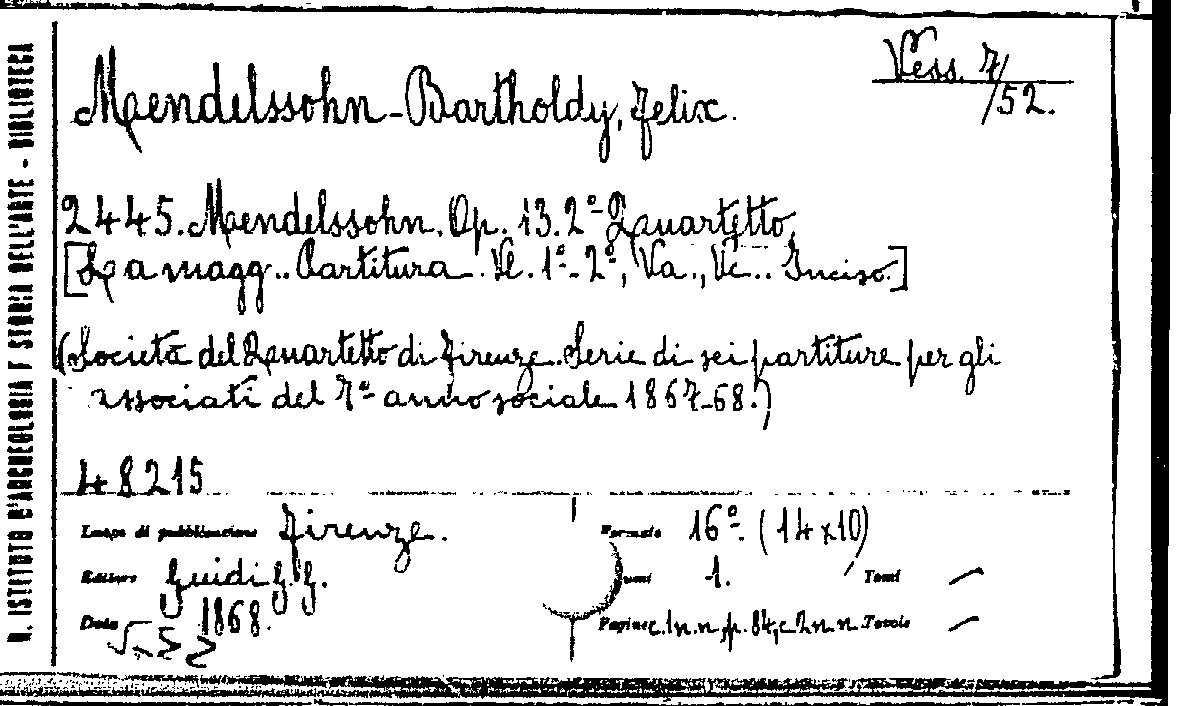 R. ISTITUTO D'ARCHEOLOGIA E STORIA DELL'ARTE - BIBLIOTECA
Vess. 7/52.
Mendelssohn-Bartholdy, Felix.
2445. Mendelssohn. Op. 13. 2º Quartetto,
[La magg.. Partitura. Vl. 1º-2º, Va., Vc.. Inciso.]
(Società del Quartetto di Firenze. Serie di sei partiture per gli
associati del 7º anno sociale 1867-68.)
48215
Luogo di pubblicazione Firenze.
Formato 16º. (14x10)
Editore Guidi G. G.
1. Tomi
Data 1868.
Pagine c.1n.n., p. 84, c. 2 n.n. Tavole